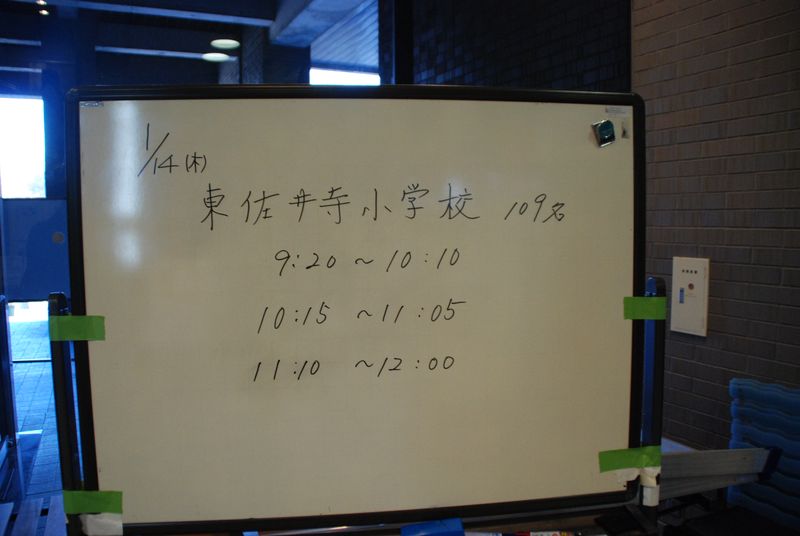 1/14(木)
東佐井寺小学校 109名
9:20 〜 10:10
10:15 〜 11:05
11:10 〜 12:00